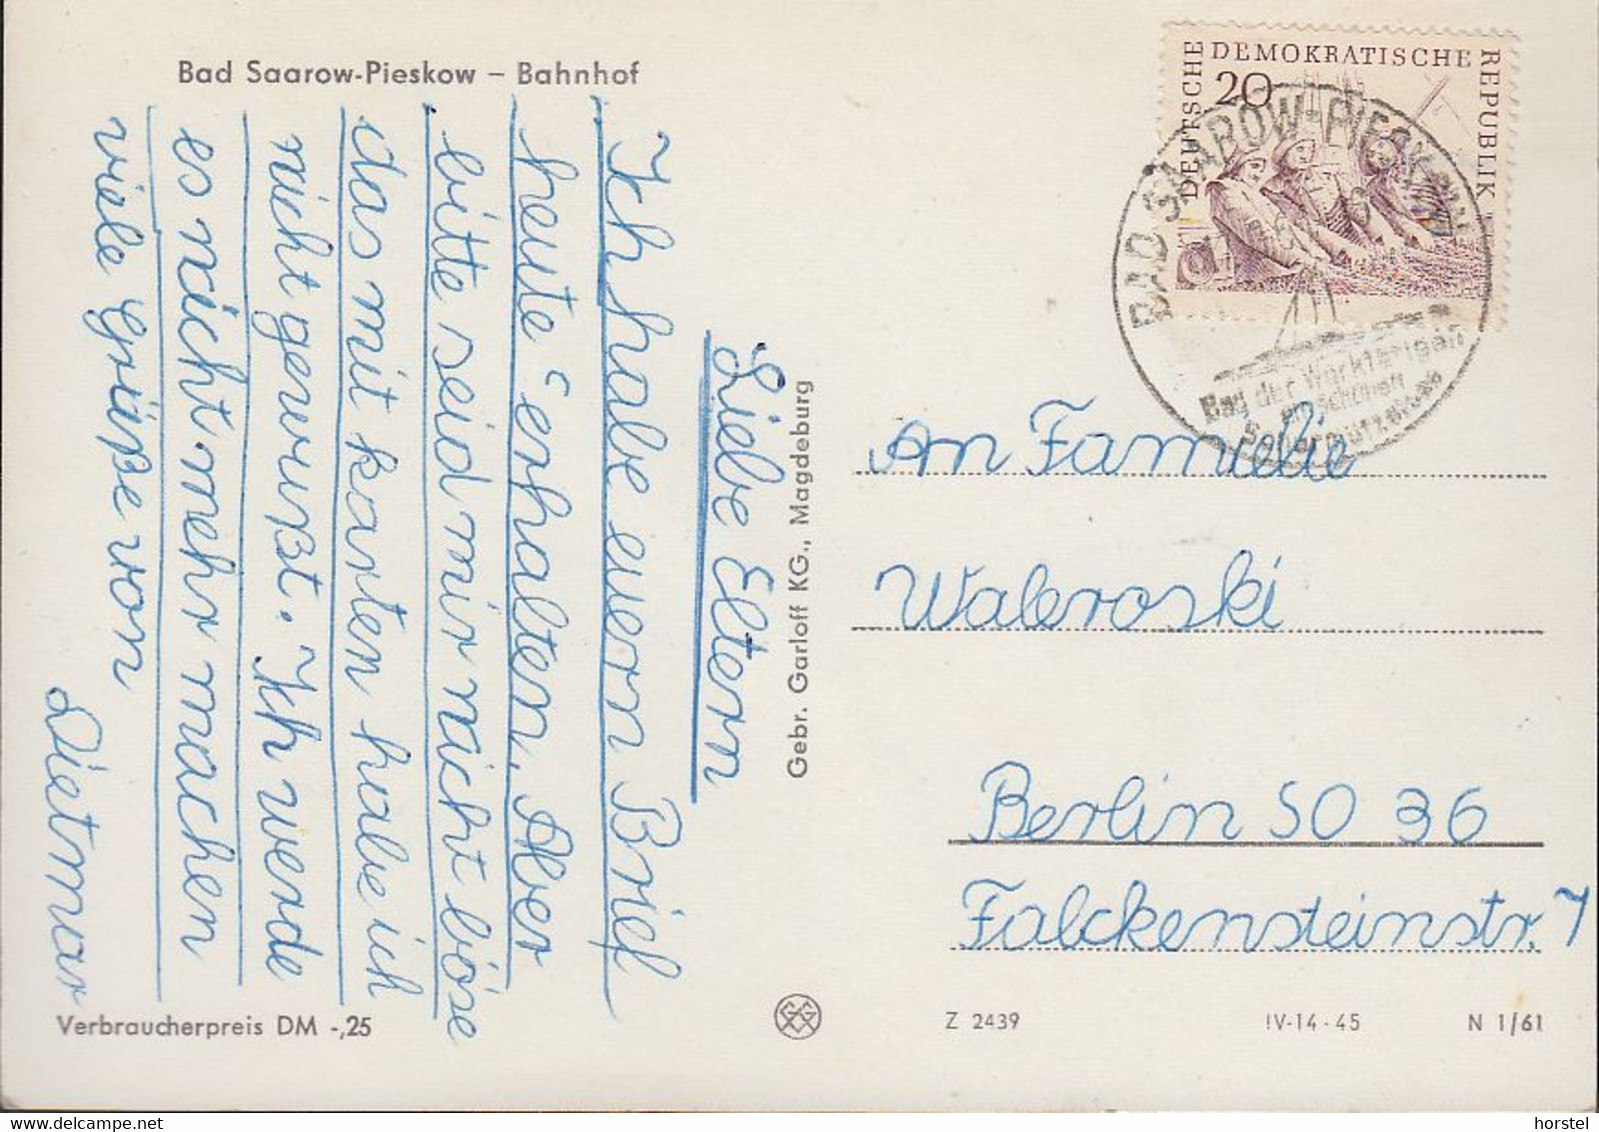 Bad Saarow-Pieskow – Bahnhof
Liebe Eltern
Ich habe euern Brief
heute erhalten. Aber
bitte seid mir nicht böse
das mit karten habe ich
nicht gewußt. Ich werde
es nicht mehr machen
viele Grüße von
Dietmar
Verbraucherpreis DM -,25
Gebr. Garloff KG., Magdeburg
DEUTSCHE DEMOKRATISCHE REPUBLIK
20
BAD SAAROW-PIESKOW
Bad der Werktätigen
am schönen
Scharmützelsee
An Familie
Waleroski
Berlin SO 36
Falckensteinstr. 7
Z 2439
IV-14-45
N 1/61
horstel
www.delcampe.net